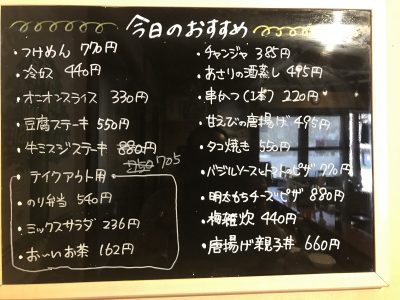 今日のおすすめ
・つけめん 770円
・冷奴 440円
・オニオンスライス 330円
・豆腐ステーキ 550円
・牛ミスジステーキ 880円
705
・テイクアウト用
・のり弁当 540円
・ミックスサラダ 236円
・お〜いお茶 162円
・チャンジャ 385円
・あさりの酒蒸し 495円
・串かつ(1本) 220円
・甘えびの唐揚げ 495円
・タコ焼き 550円
・バジルソースとトマトのピザ 770円
・明太もちチーズピザ 880円
・梅雑炊 440円
・唐揚げ親子丼 660円